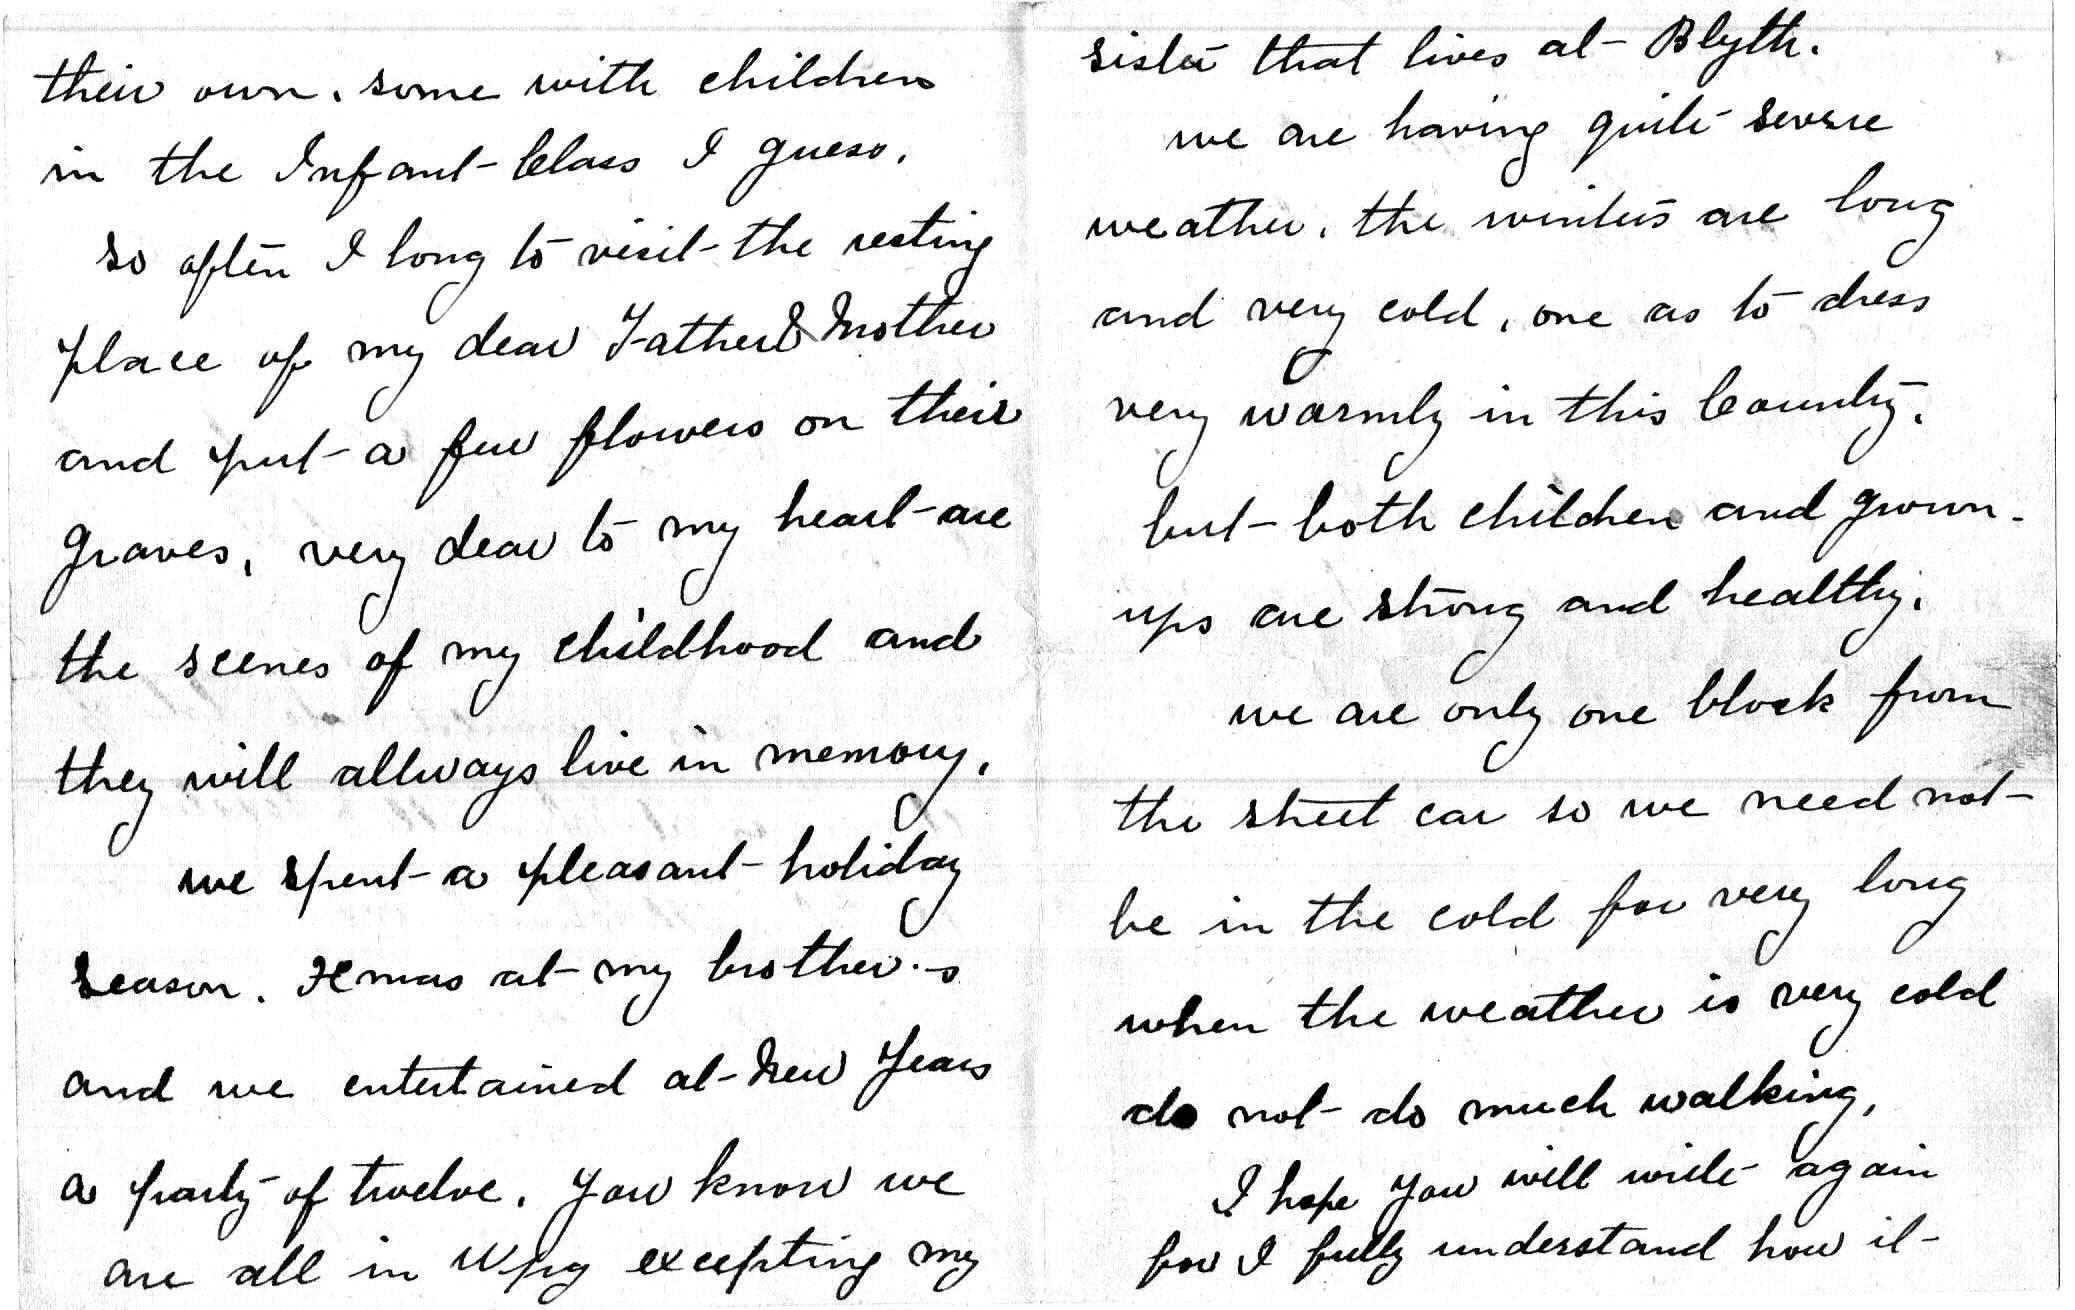 their own. some with children
in the Infant Class I guess.
so often I long to visit the resting
place of my dear Father & Mother
and put a few flowers on their
graves, very dear to my heart are
the scenes of my childhood and
they will allways live in memory.
we spent a pleasant holiday
season. Xmas at my brother's
and we entertained at New Years
a party of twelve. You know we
are all in Wpg excepting my
sister that lives at Blyth.
we are having quite severe
weather. the winters are long
and very cold, one as to dress
very warmly in this Country.
but both children and grown-
ups are strong and healthy.
we are only one block from
the street car so we need not
be in the cold for very long
when the weather is very cold
do not do much walking.
I hope you will write again
for I fully understand how it